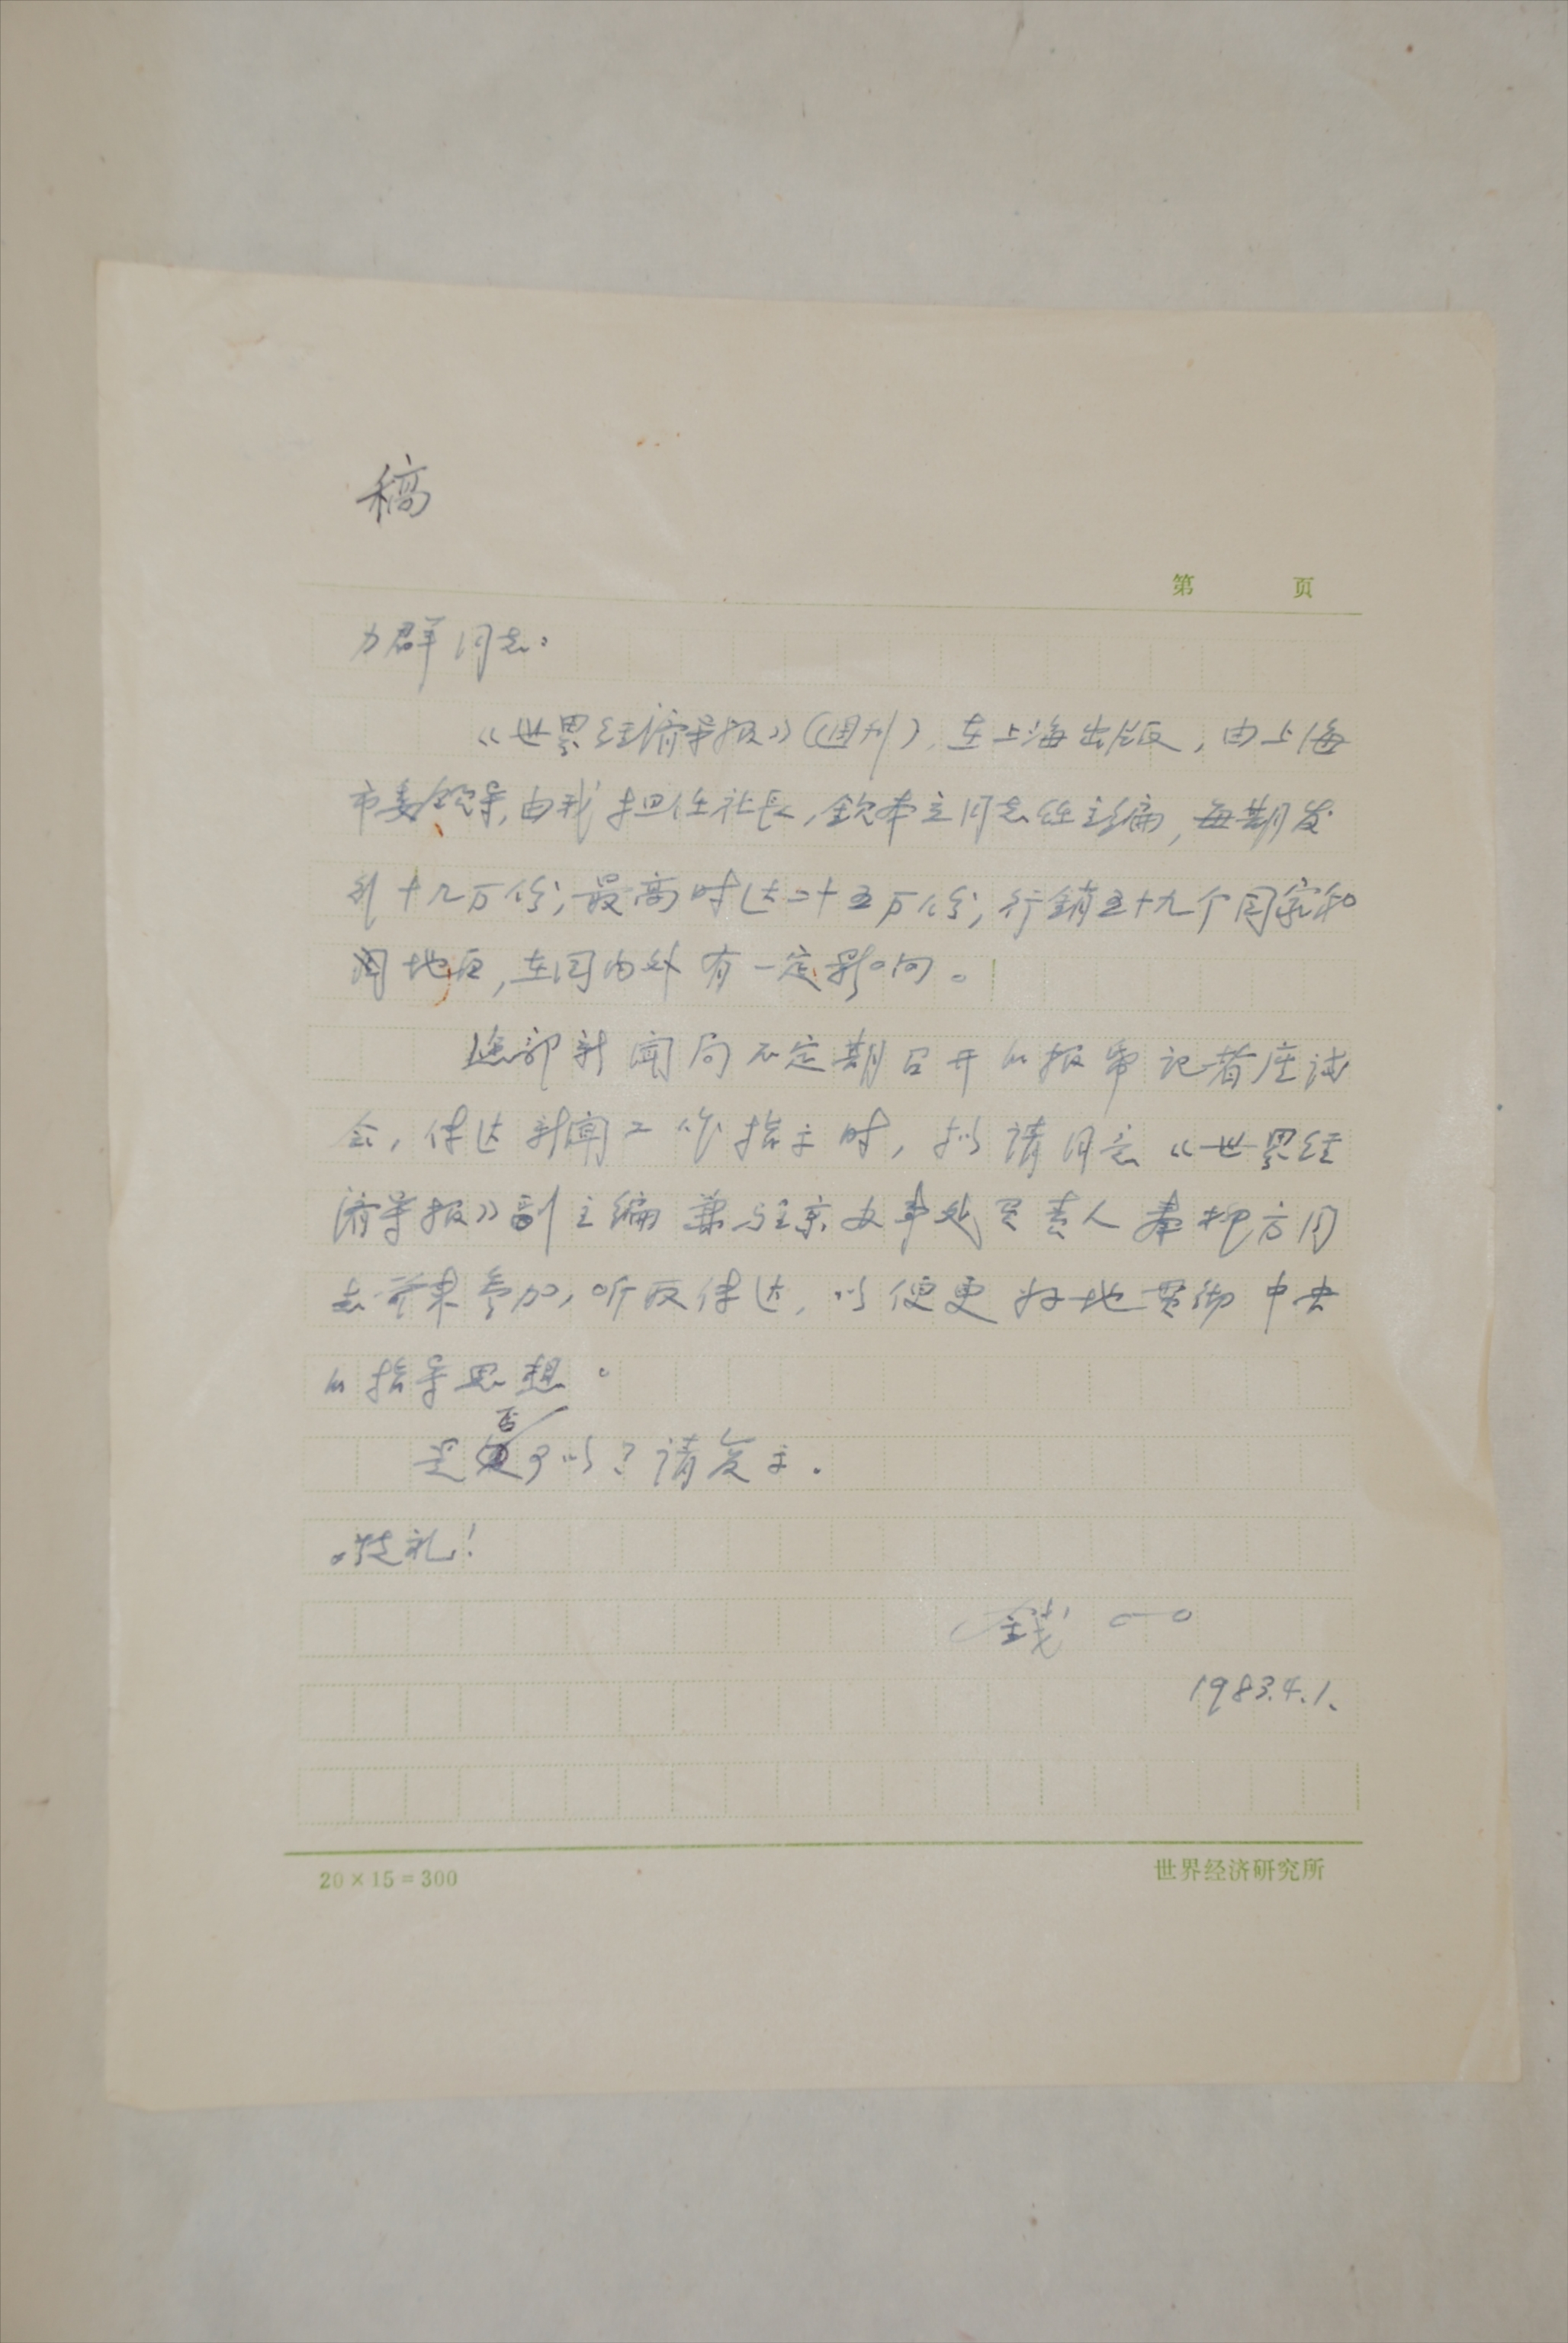 稿
第 页
力群同志:
《世界经济导报》(周刊),在上海出版,由上海
市委领导,由我担任社长,钦本立同志任主编,每期发
行十几万份,最高时达二十五万份,行销五十九个国家和
地区,在国内外有一定影响。
部新闻局不定期召开的报审记者座谈
会,传达新闻工作指示时,拟请同意《世界经
济导报》副主编兼驻京办事处负责人 方同
志前来参加,听取传达,以便更好地贯彻中央
的指导思想。
是否可以?请复示.
敬礼!
钱
1983.4.1.
20×15=300
世界经济研究所